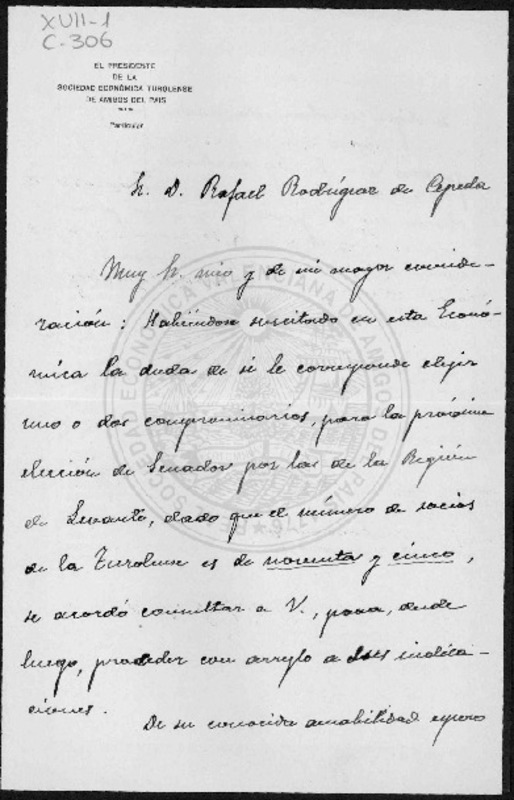 XVII-1
C-306
EL PRESIDENTE
DE LA
SOCIEDAD ECONÓMICA TUROLENSE
DE AMIGOS DEL PAÍS
Particular
Sr. D. Rafael Rodríguez de Cepeda
Muy Sr. mío y de mi mayor conside-
ración: Habiéndose suscitado en esta Econó-
mica la duda de si le corresponde elegir
uno o dos compromisarios, para la próxima
elección de Senador por las de la Región
de Levante, dado que el número de socios
de la Turolense es de noventa y cinco,
se acordó consultar a V., para, desde
luego, proceder con arreglo a sus indica-
ciones.
De su conocida amabilidad espero
SOCIEDAD ECONÓMICA VALENCIANA DE AMIGOS DEL PAÍS 1776